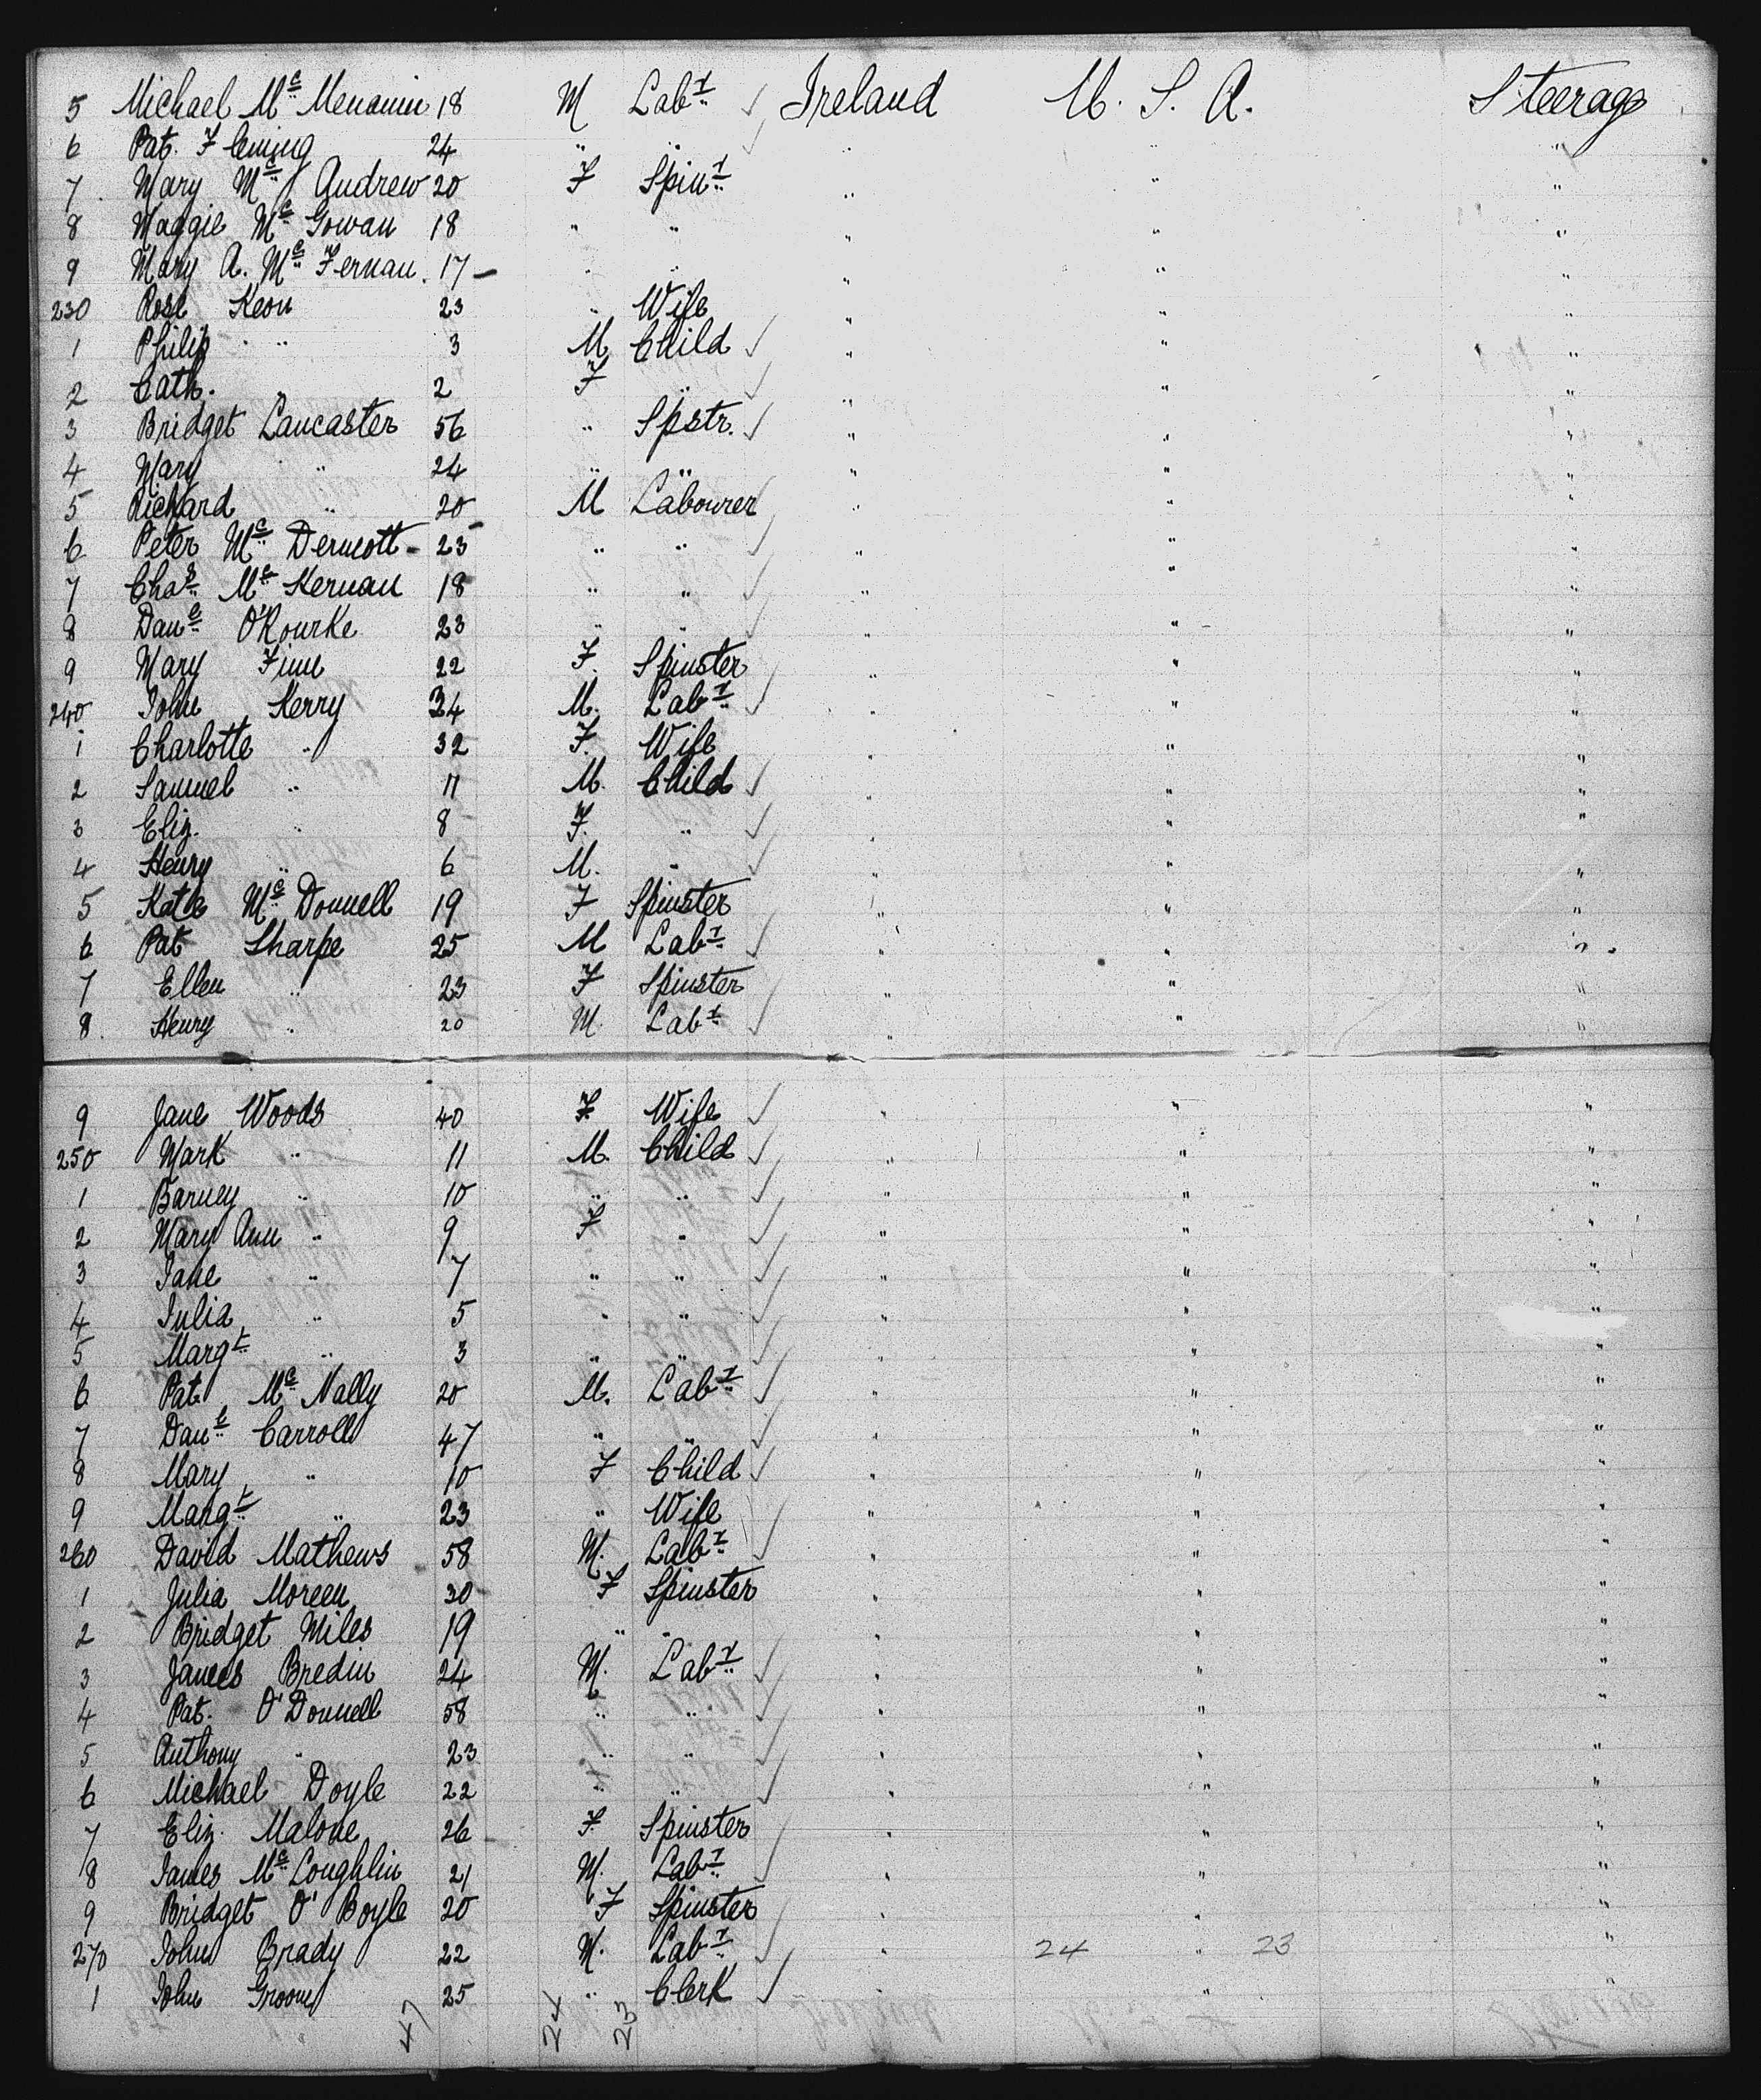 5 Michael Mc Menamin 18 M Labr ✓ Ireland U. S. A. Steerage
6 Pat. Fleming 24 " " ✓ " " "
7 Mary Mc Andrew 20 F Spinr " " "
8 Maggie Mc Gowan 18 " " " " "
9 Mary A. Mc Fernan. 17 — " " " " "
230 Rose Keon 23 " Wife " " "
1 Philip " 3 M Child ✓ " " "
2 Cath. " 2 F " ✓ " " "
3 Bridget Lancaster 56 " Spstr. ✓ " " "
4 Mary " 24 " " " " "
5 Richard " 20 M Labourer ✓ " " "
6 Peter Mc Dermott - 23 " " ✓ " " "
7 Chas Mc Kernan 18 " " ✓ " " "
8 Danl O'Rourke 23 " " ✓ " " "
9 Mary Finn 22 F. Spinster " " "
240 John Kerry 34 M. Labr ✓ " " "
1 Charlotte " 32 F. Wife " " "
2 Samuel " 11 M. Child ✓ " " "
3 Eliz. " 8 F. " ✓ " " "
4 Henry " 6 M. " ✓ " " "
5 Kate Mc Donnell 19 F Spinster " " "
6 Pat Sharpe 25 M Labr ✓ " " "
7 Ellen " 23 F Spinster " " "
8. Henry " 20 M Labr ✓ " " "
9 Jane Woods 40 F. Wife ✓ " " "
250 Mark " 11 M. Child ✓ " " "
1 Barney " 10 " " ✓ " " "
2 Mary Ann " 9 F " ✓ " " "
3 Jane " 7 " " ✓ " " "
4 Julia " 5 " " ✓ " " "
5 Margt " 3 " " ✓ " " "
6 Pat Mc Nally 20 M. Labr ✓ " " "
7 Danl Carroll 47 " " ✓ " " "
8 Mary " 10 F Child ✓ " " "
9 Margt " 23 " Wife ✓ " " "
260 David Mathews 58 M. Labr ✓ " " "
1 Julia Moreen 30 F Spinster " " "
2 Bridget Miles 19 " " " " "
3 James Bredin 24 M. Labr ✓ " " "
4 Pat. O'Donnell 58 " " ✓ " " "
5 Anthony " 23 " " ✓ " " "
6 Michael Doyle 22 " " ✓ " " "
7 Eliz. Malone 26 F. Spinster " " "
8 James Mc Loughlin 21 M. Labr ✓ " " "
9 Bridget O'Boyle 20 F Spinster " " "
270 John Brady 22 M. Labr ✓ " 24 " 23 "
1 John Groom 25 " Clerk ✓ " " "
47 24 23